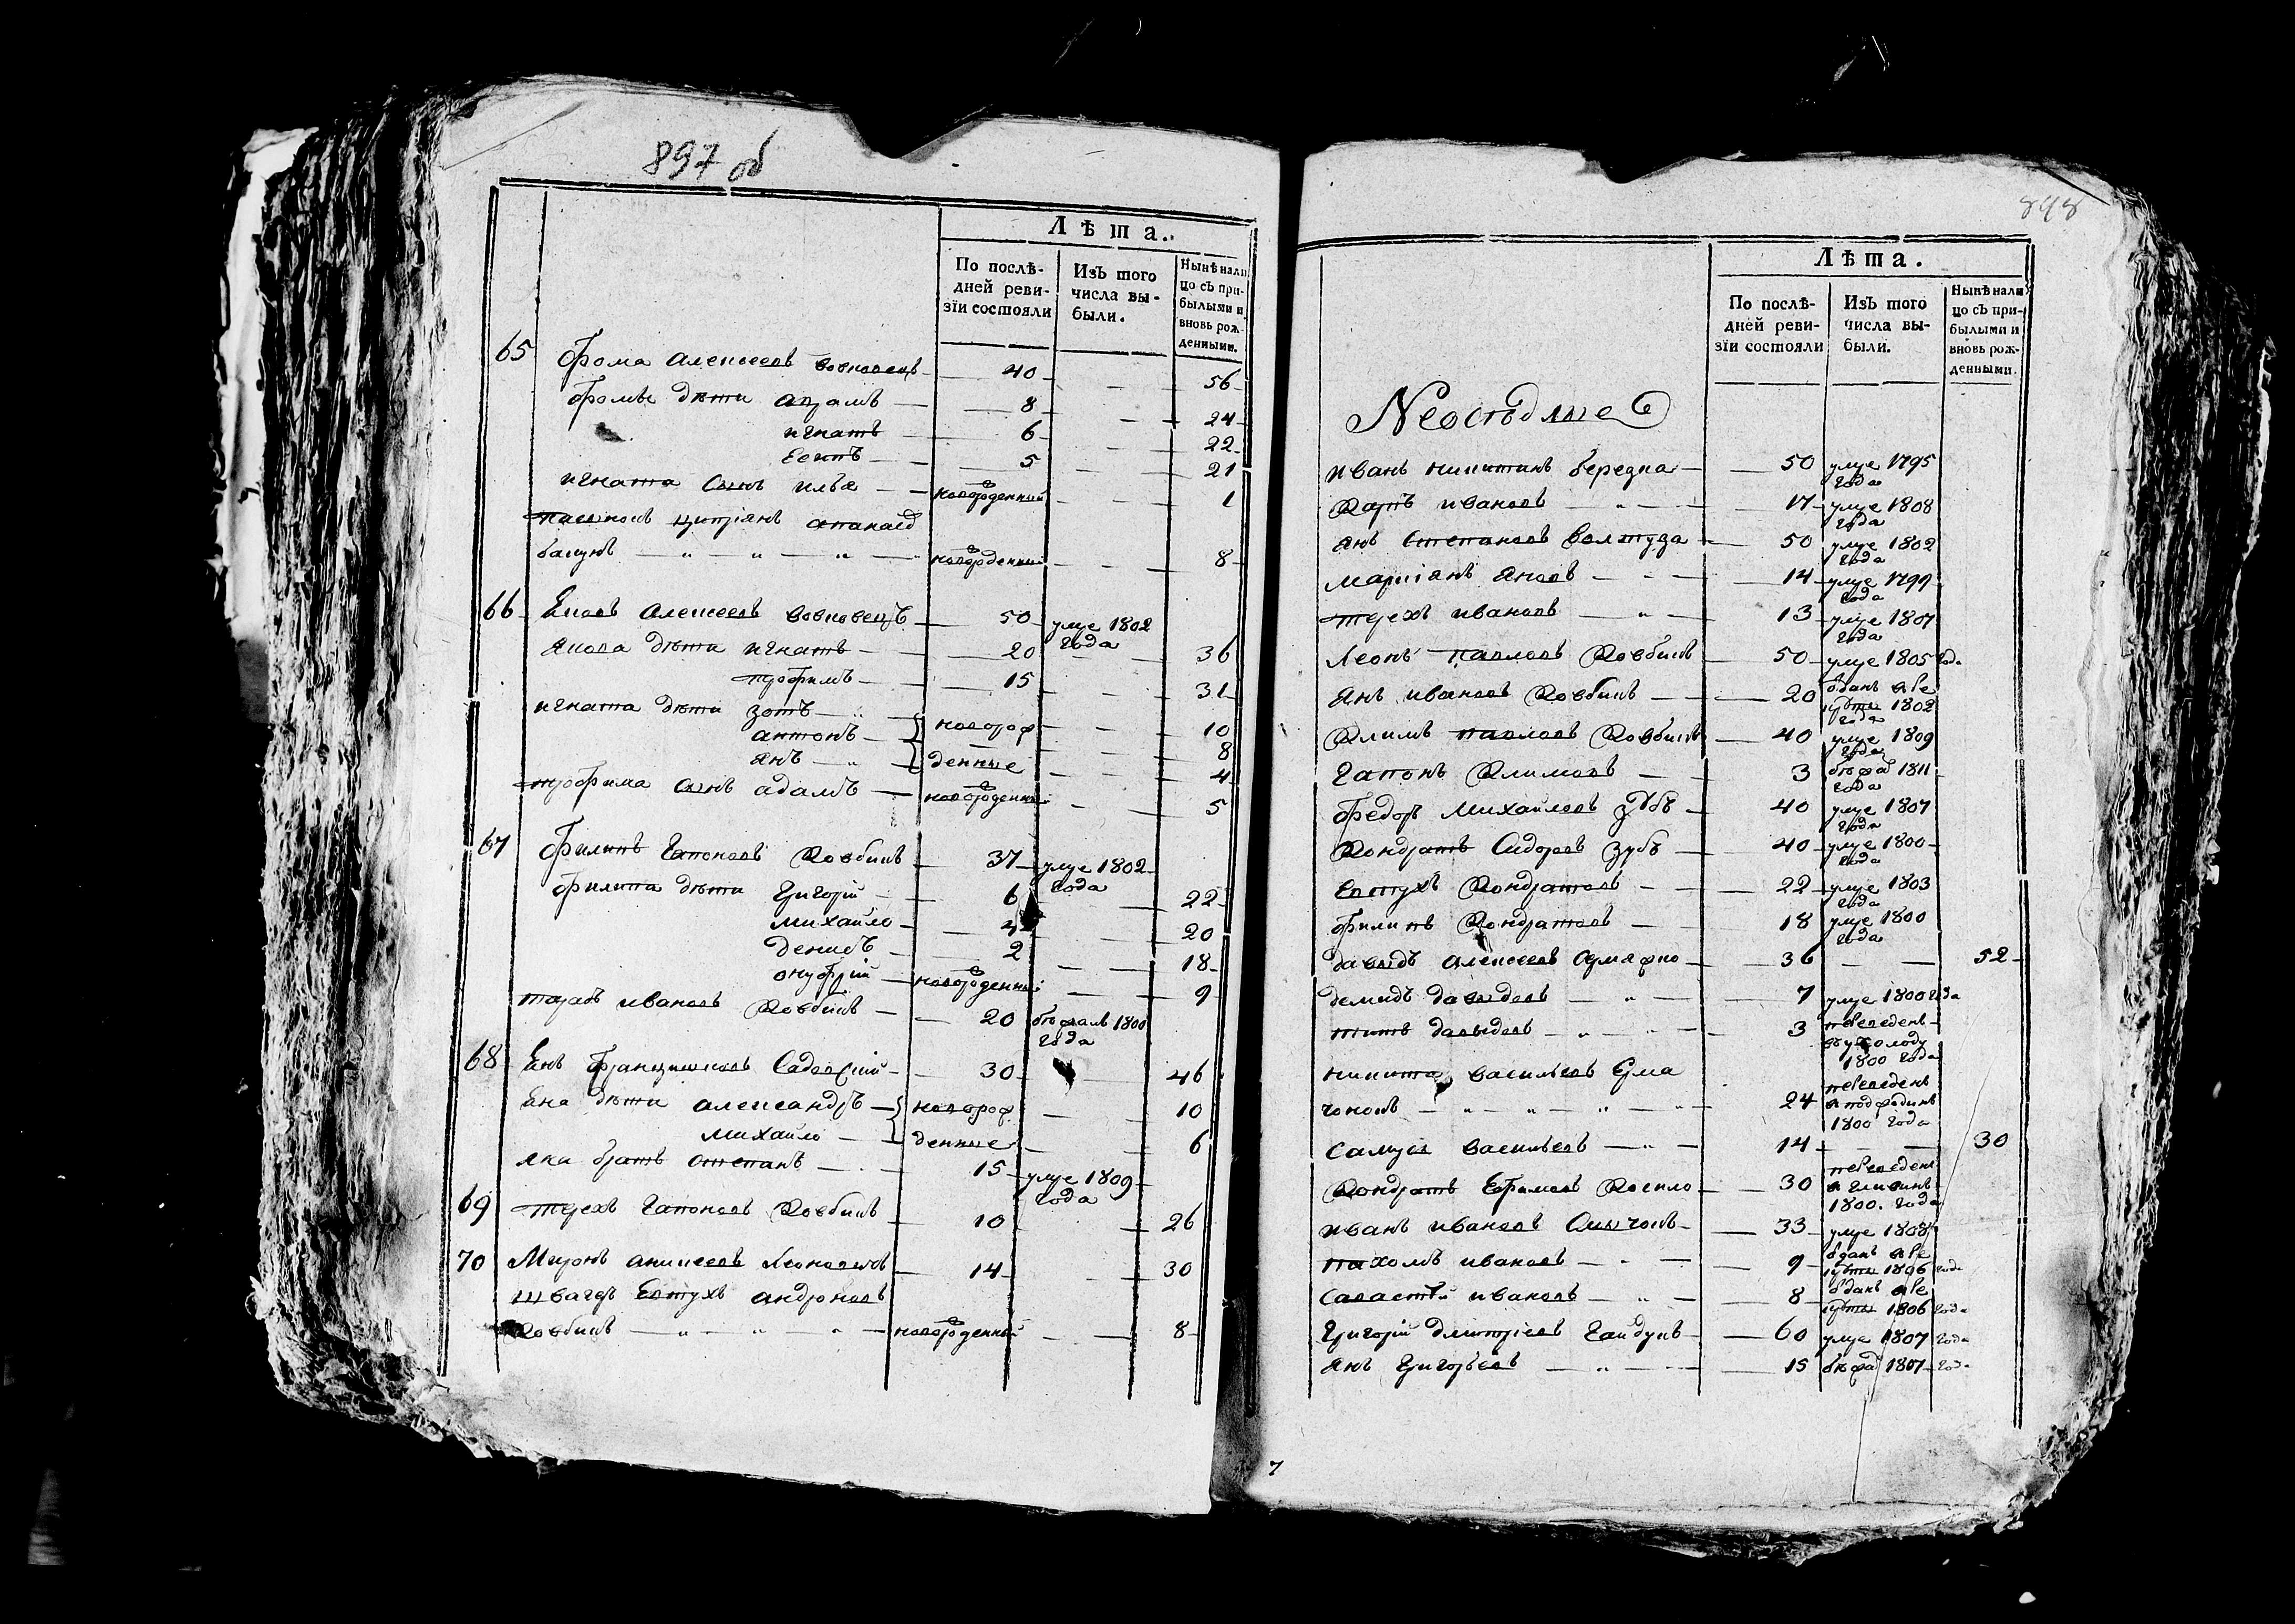 897 об
Лѣта.
По послѣдней ревизїи состояли
Изъ того числа выбыли.
Нынѣ налицо съ прибылыми и вновь рожденными.
65 Фома Алексеевъ Вовковецъ 40 — 56
Фомы дѣти Абрамъ 8 — 24
Игнатъ 6 — 22
Есипъ 5 — 21
Игната сынъ Илья новорожденный — 1
ПасынокъЦипріянъ
новорожденный — 8
66 Яковъ Алексеевъ Вовковецъ 50 умре 1802 года
Якова дѣти Игнатъ 20 — 36
Трофимъ 15 — 31
Игната дѣти Зотъ новорож — 10
Антонъ — 8
Янъ денные — 4
Трофима сынъ Адамъ новорожденный — 5
67 Филипъ Гапоновъ Ковбикъ 37 умре 1802 года
Филипа дѣти Григорій 6 — 22
Михайло 4 — 20
Денисъ 2 — 18
Онуфрій новорожденный — 9
Тарасъ Ивановъ Ковбикъ 20 бѣжалъ 1800 года
68 Янъ Францишковъ Садовскій 30 — 46
Яна дѣти Александръ новорож — 10
Михайло денные — 6
Яна братъ Степанъ 15 умре 1809 года
69 Терехъ Гапоновъ Ковбикъ 10 — 26
70 Миронъ Аникеевъ 14 — 30
Швагеръ Евтухъ Андроновъ
Ковбикъ новорожденный — 8
848
Лѣта.
По послѣдней ревизїи состояли
Изъ того числа выбыли.
Нынѣ налицо съ прибылыми и вновь рожденными.
Неосѣдлые
Иванъ Никитинъ Бередка 50 умре 1795 года
Карпъ Ивановъ 17 умре 1808 года
Янъ Степановъ Волтуза 50 умре 1802 года
Марціянъ Яновъ 14 умре 1799 года
Терехъ Ивановъ 13 умре 1807 года
Леонъ Павловъ Ковбикъ 50 умре 1805 года
Янъ Ивановъ Ковбикъ 20 отданъ в рекруты 1802 года
Климъ Павловъ Ковбикъ 40 умре 1809 года
Гапонъ Климовъ 3 бѣжа 1811 года
Федоръ Михайловъ Зубъ 40 умре 1807 года
Кондратъ Сидоровъ Зубъ 40 умре 1800 года
Евтухъ Кондратовъ 22 умре 1803 года
Филипъ Кондратовъ 18 умре 1800 года
Давыдъ Алексеевъ 36 — 52
Демидъ Давыдовъ 7 умре 1800 года
Титъ Давыдовъ 3 переведенъ в 1800 года
Никита Васильевъ Ермачонокъ 24 переведенъ в 1800 года
Самусь Васильевъ 14 — 30
Кондратъ Ефимовъ 30 переведенъ в 1800. года
Иванъ Ивановъ 33 умре 1808
Пахомъ Ивановъ 9 отданъ в рекруты 1806 года
Савастѣй Ивановъ 8 отданъ в рекруты 1806 года
Григорій Дмитріевъ Гайдукъ 60 умре 1807 года
Янъ Григорьевъ 15 бѣжа 1807 года
7